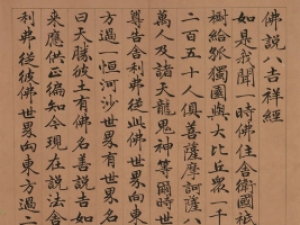 佛說八吉祥經
如是我聞一時佛住舍衛國祇
樹給孤獨園與大比丘衆一千
二百五十人俱菩薩摩訶薩八
萬人及諸天龍鬼神等爾時世
尊告舍利弗從此佛世界向東
方過一恒河沙世界有世界名
曰天勝彼土有佛名善說吉如
來應供正徧知今現在說法舍
利弗從彼佛世界向東方過二